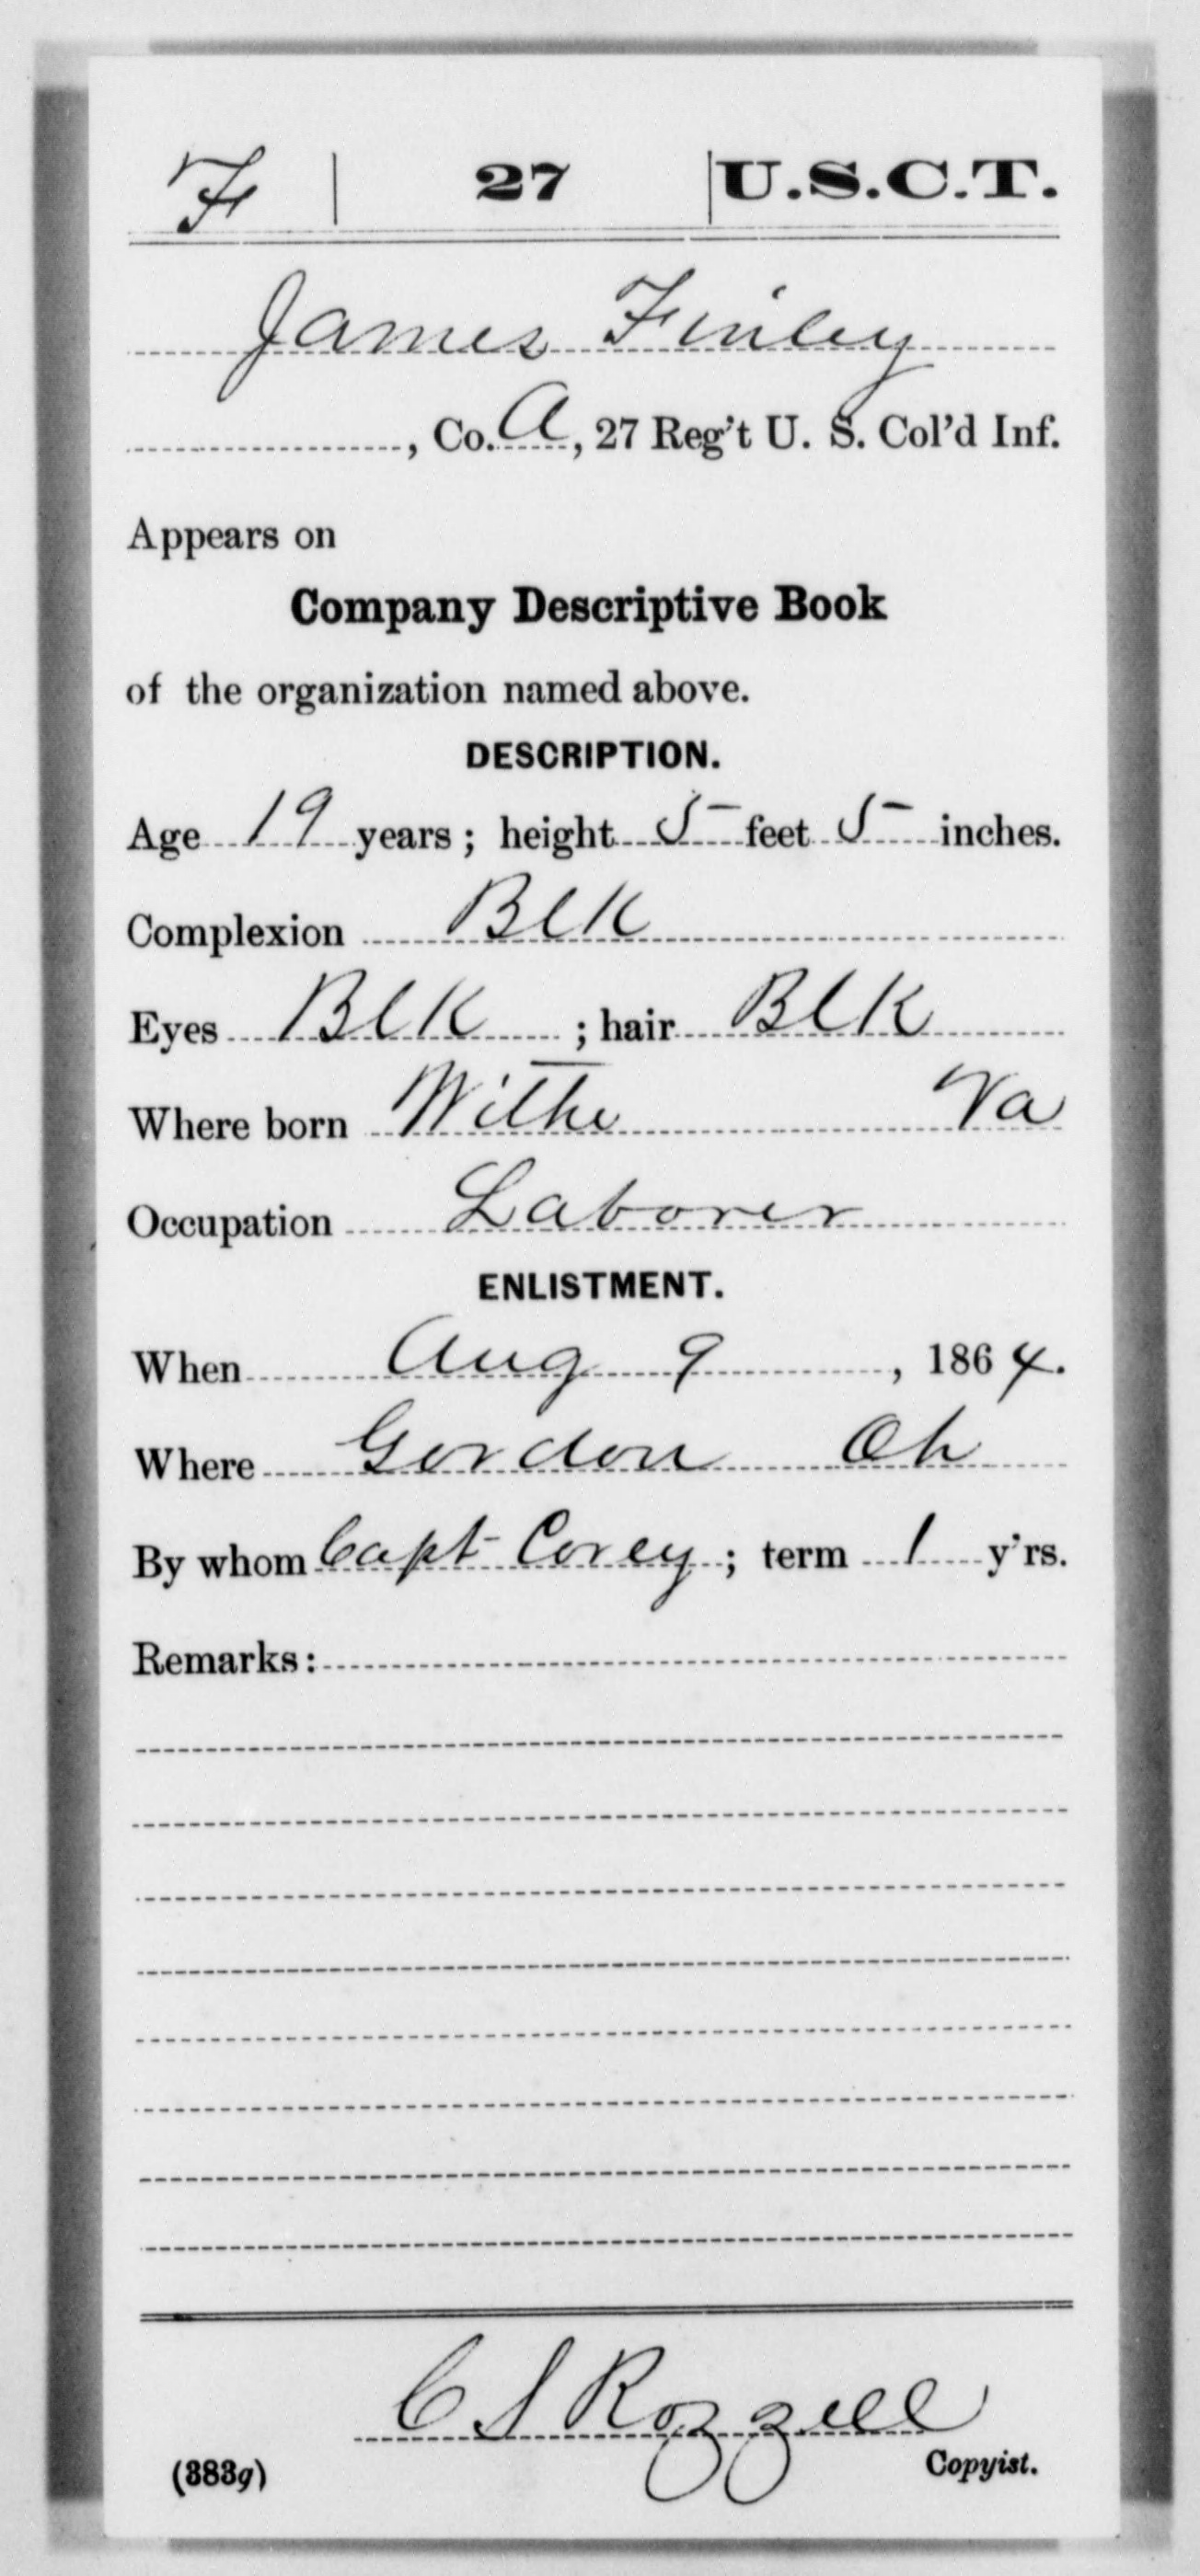 F 27 U.S.C.T.
James Finley
, Co. A, 27 Reg't U. S. Col'd Inf.
Appears on
Company Descriptive Book
of the organization named above.
DESCRIPTION.
Age 19 years; height 5 feet 5 inches.
Complexion Blk
Eyes Blk ; hair Blk
Where born Withe Va
Occupation Laborer
ENLISTMENT.
When Aug 9, 1864.
Where Gordon Oh
By whom Capt Corey; term 1 y'rs.
Remarks:
C S Rozzell
(383g) Copyist.